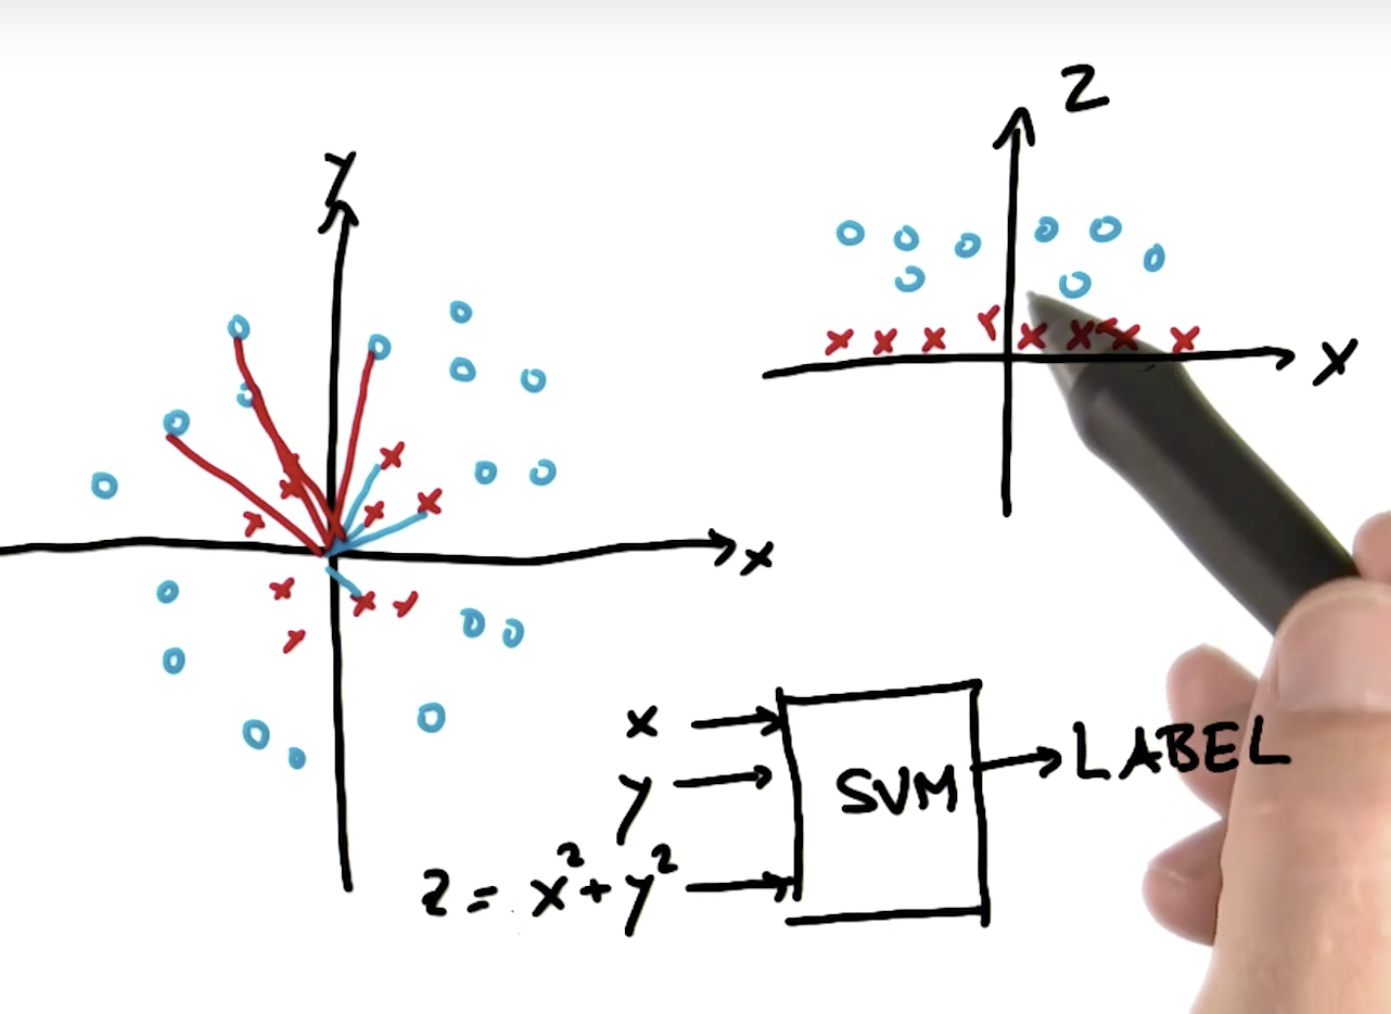 z
y
x
x
x
y
z = x² + y²
SVM
LABEL